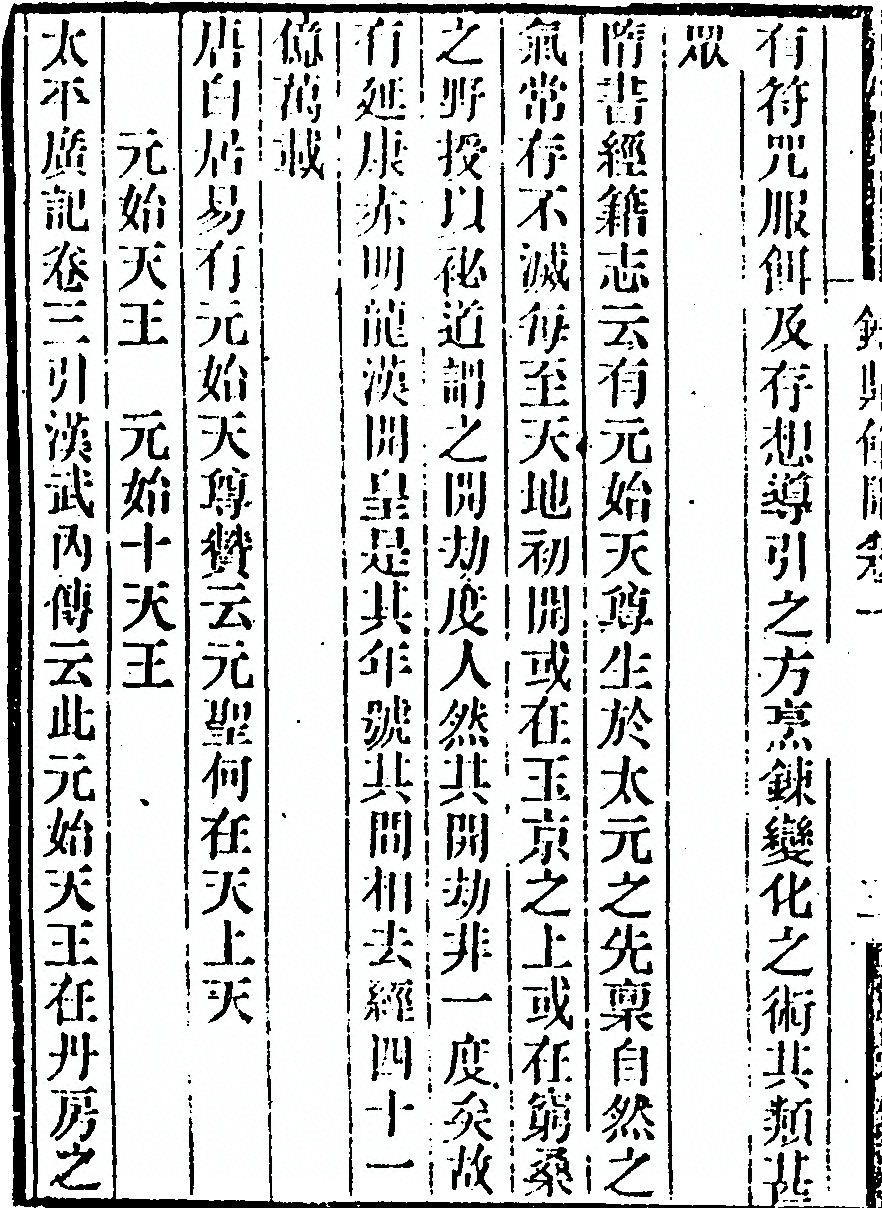 有符咒服餌及存想導引之方烹鍊變化之術其類甚
眾
隋書經籍志云有元始天尊生於太元之先稟自然之
氣常存不滅每至天地初開或在玉京之上或在窮桑
之野授以祕道謂之開劫度人然其開劫非一度矣故
有延康赤明龍漢開皇是其年號其間相去經四十一
億萬載
唐白居易有元始天尊贊云元聖何在天上天
元始天王　元始十天王
太平廣記卷三引漢武內傳云此元始天王在丹房之
卷一